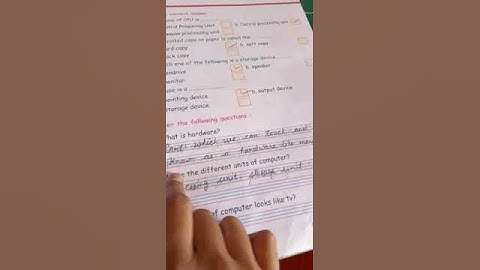 correct answer
of CPU is
Processing Unit b. Central processing unit
processing unit
printed copy on paper is called the
hard copy b. soft copy
back copy
one of the following is a storage device
pendrive b. speaker
monitor
is a
pointing device b. output device
storage device
the following questions
What is hardware?
which we can touch and
known as a hardware like
the different units of computer?
unit, storage unit
of computer looks like tv?